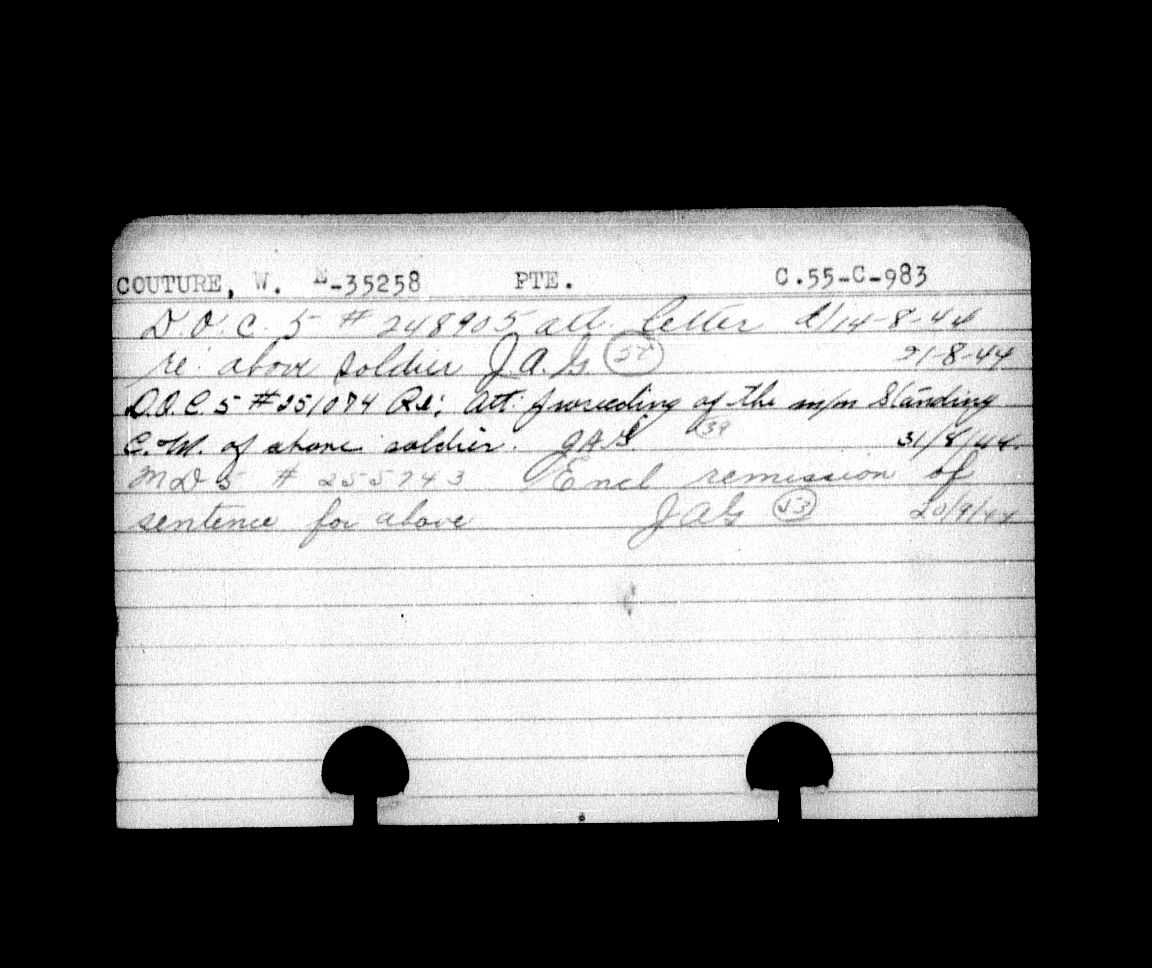 COUTURE, W. E-35258 PTE. C.55-C-983
D.O.C. 5 # 248905 att. letter d/14-8-44
re: above soldier J.A.G. 21-8-44
D.O.C. 5 #251074 Re: att: proceeding of the m/m Standing
C.M. of above soldier. JAG. 39 31/8/44.
M D 5 # 255743 Encl remission of
sentence for above JAG 53 20/9/44